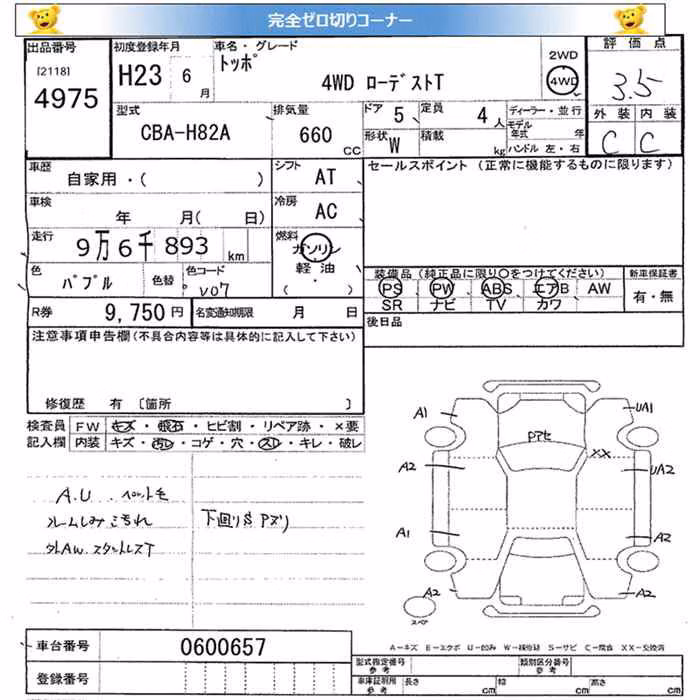 完全ゼロ切りコーナー
出品番号
[2118]
4975
初度登録年月
H23 6 月
車名・グレード
トッポ
4WD ローデストT
2WD
4WD
評価点
3.5
外装 内装
C C
型式
CBA-H82A
排気量
660 CC
ドア 5
定員 4 人
形状 W
積載 kg
ディーラー・並行
モデル年式 年
ハンドル 左・右
車歴
自家用・( )
シフト
AT
セールスポイント (正常に機能するものに限ります)
車検
年 月( 日)
冷房
AC
走行
9万6千893 km
燃料
ガソリン
軽油
( ・ )
色
パプル
色替
色コード
V07
装備品 (純正品に限り〇をつけてください)
新車保証書
PS PW ABS エアB AW
SR ナビ TV カワ
有・無
R券
9,750 円
名変通知期限 月 日
後日品
注意事項申告欄(不具合内容等は具体的に記入して下さい)
修復歴 有 〔箇所 〕
検査員
記入欄
FW キズ・飛石・ヒビ割・リペア跡・×要
内装 キズ・汚レ・コゲ・穴・スレ・キレ・破レ
A.U. ペット毛
下回りS Pズリ
A1
A2
A1
A2
Pアセ
XX
UA1
UA2
A2
A2
スペア
A−キズ E−エクボ U−凹み W−補修跡 S−サビ C−腐食 XX−交換済
車台番号
0600657
登録番号
型式指定番号
参考
類別区分番号
参考
車庫証明用
参考
長さ cm 幅 cm 高さ cm